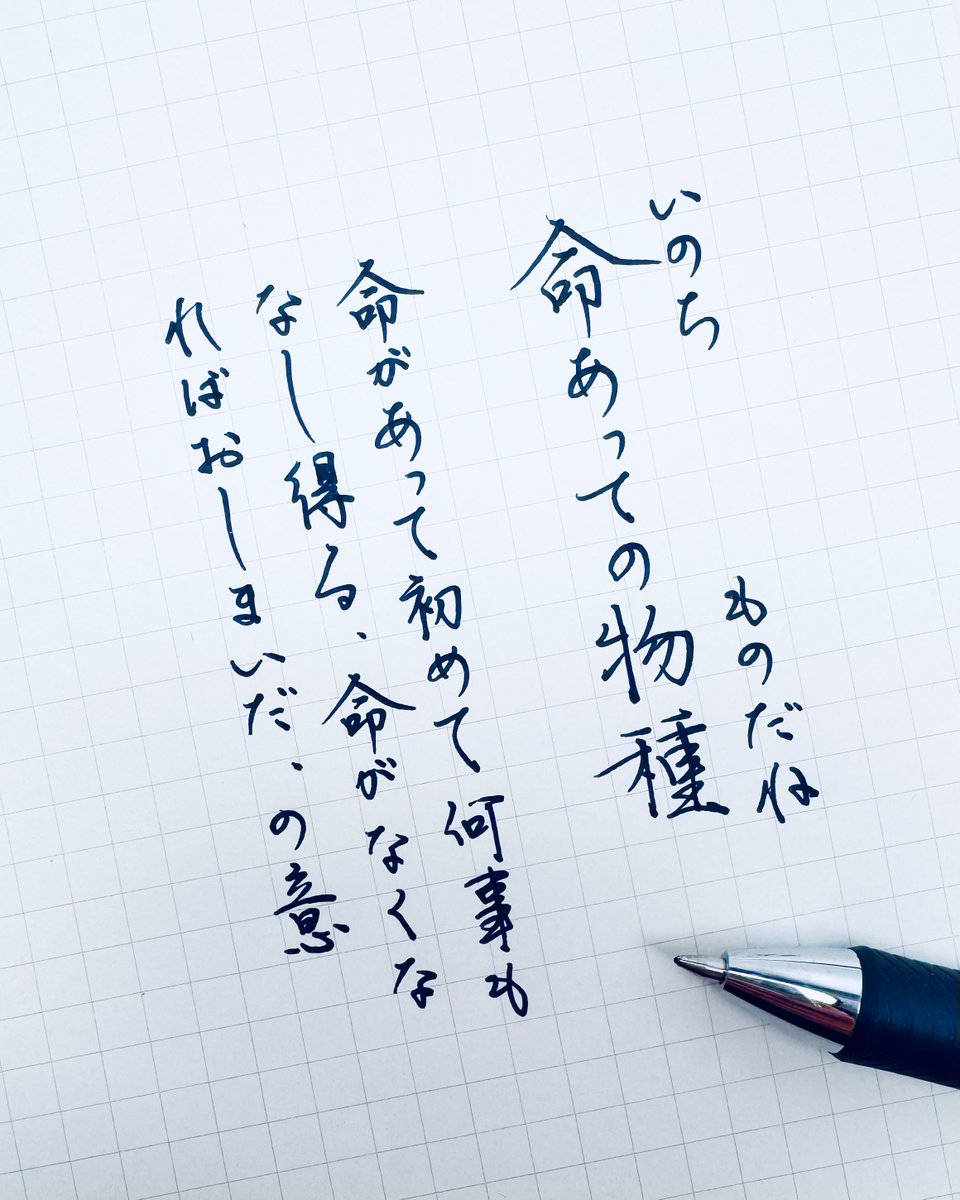 いのち ものだね
命あっての物種
命があって初めて何事も
なし得る、命がなくな
ればおしまいだ、の意